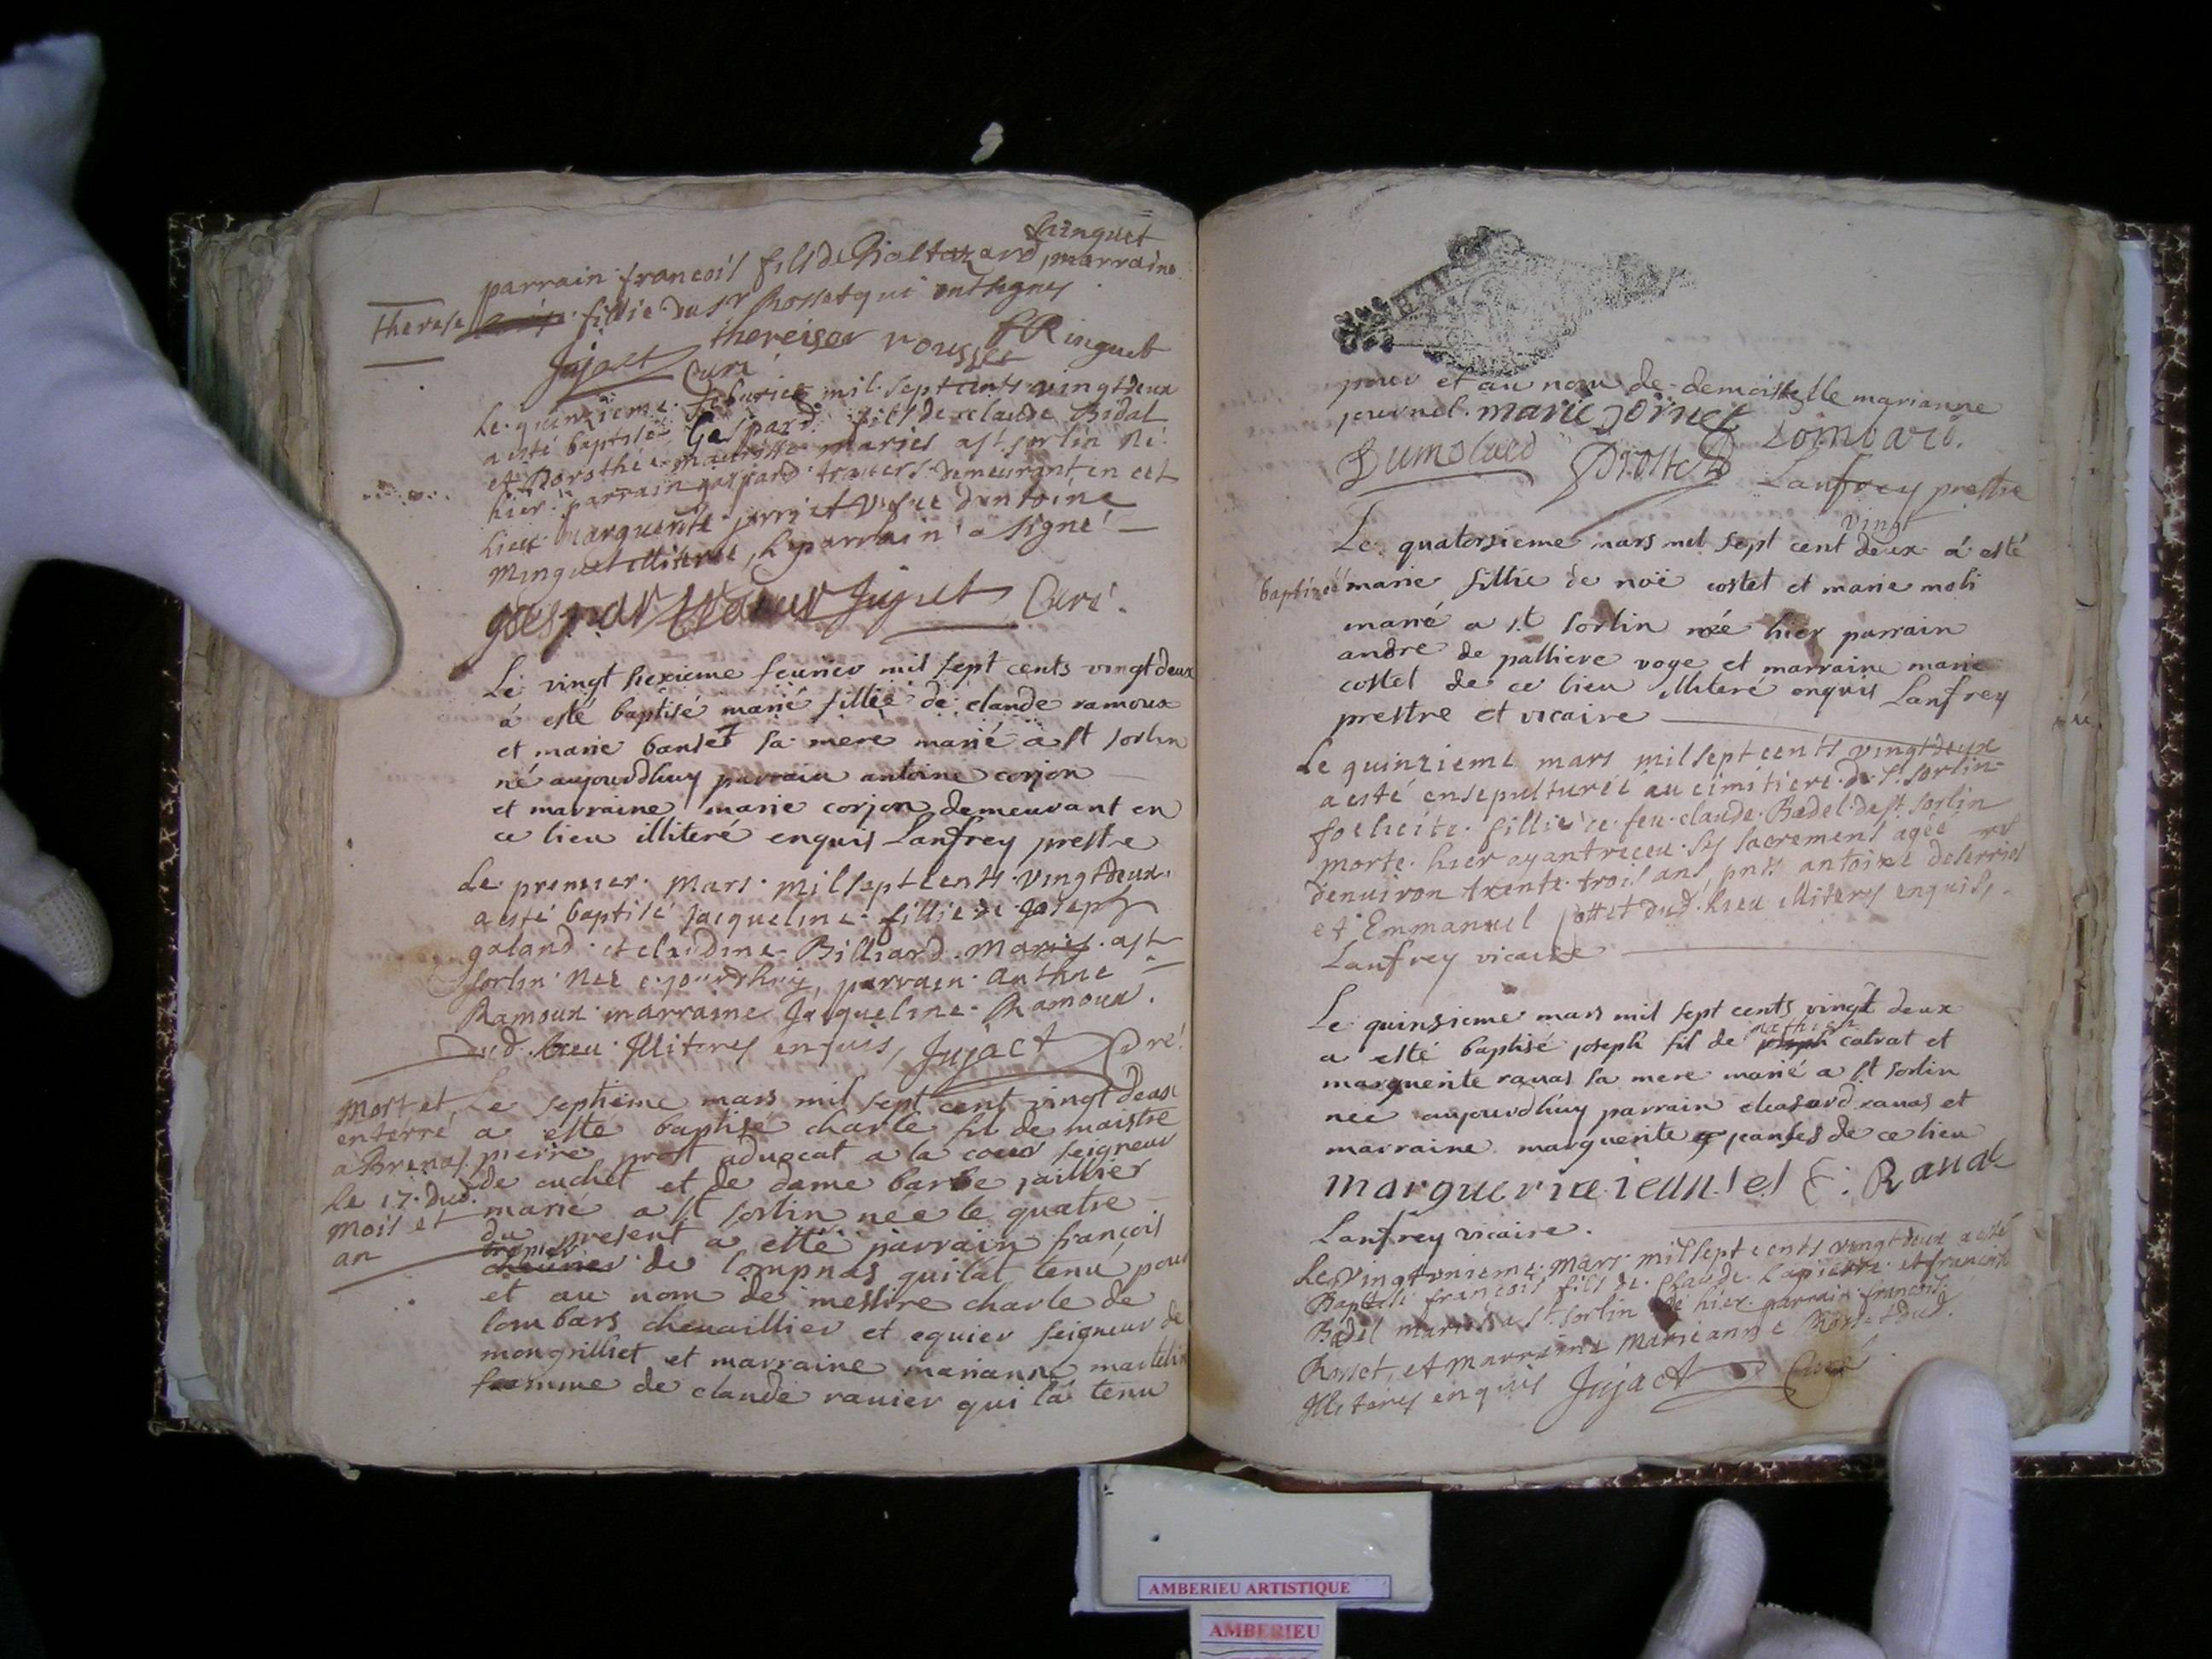 Ringuet
parrain francois fils de Baltazard, marraine
therese fillie du sr Rosset qui ont signes
thereiser rousset f Ringuet
Jujact Curé
Le quinzieme feburier mil sept cents vingt deux
a esté baptisé Gaspard fils de claude Bidal
et Dorothée mariés a st sorlin né
hier parrain gaspard travers demeurant en cet
lieu marguerite et Vefue dantoine
Minguet illiteree, le parrain a signé
gaespar Jujact Curé
Le vingt siexieme feurier mil sept cents vingt deux
á esté baptisé marié fillie de claude ramoux
et marie banset sa mere marié a st sorlin
né aujourdhuy parrain antoine corjon
et marraine marie corjon demeurant en
ce lieu illiteré enquis Lanfrey prestre
Le premier Mars mil sept cents vingt deux
a esté baptisé Jacqueline fillie de Joseph
galand et claudine Billiard Mariés a st
sorlin née ejourdhuy, parrain anthne
Ramoux marraine Jacqueline Ramoux
dud lieu Illiterés enquis, Jujact Cure
Le septieme mars mil sept cent vingt deux
a esté baptisé charle fil de maistre
pierre prost aduocat a la cour seigneur
de cuchet et de dame barbe jaillier
marié a st sorlin née le quatre
du present a esté parrain françois
de lompnas qui lat tenu pour
et au nom de messire charle de
lombars cheuaillier et equier seigneur de
mongrilliet et marraine marianne martelin
femme de claude rauier qui la tenu
Mort et
enterré
a Brenas
Le 17 dud
Mois et
an
pour et au nom de demoiselle marianne
journel marie jornet
Dumolard Prost Lombard
Lanfrey prestre
vingt
Le quatorsieme mars mil sept cent deux á esté
baptizéé marie fillie de noë costet et marie moli
marié a st sorlin née hier parrain
andre de palliere voge et marraine marie
costet de ce lieu illiteré enquis Lanfrey
prestre et vicaire
Le quinzieme mars mil sept cents vingt deux
a esté ensepulturéé au cimitiere de st sorlin
foelicite fillie de feu claude Badel de st sorlin
morte hier ayant receu ses sacrement agéé
denuiron trente trois ans, pnts antoine deserrier
et Emmanuel pottet dud lieu illiterés enquis,
Lanfrey vicaire
Le quinsieme mars mil sept cents vingt deux
mathieu
a esté baptisé joseph fil de joseph caluat et
marguerite rauas sa mere marié a st sorlin
née aujourdhuy parrain eleasard rauas et
marraine marguerite jeanses de ce lieu
marguerite ieunses E: Rauat
Lanfrey vicaire
Le Vingt unieme Mars mil sept cents vingt deux a esté
Baptisé françois fils de Claude Lapierre et francoise
Badel mariés a st sorlin né hier parrain francois
Rosset, et Marraine Marieanne Rosset dud.
Illiterés enquis Jujact Curé
AMBERIEU ARTISTIQUE
AMBERIEU